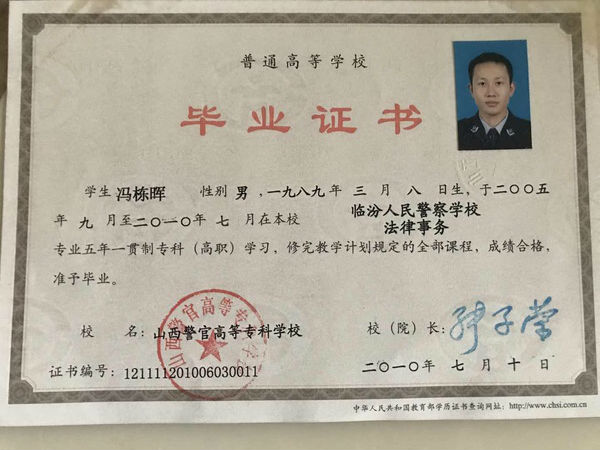 普通高等学校
毕业证书
学生 冯栋晖 性别 男 ，一九八九年 三 月 八 日生，于二〇〇五
年 九 月至二〇一〇年 七 月在本校 临汾人民警察学校
法律事务
专业五年一贯制专科（高职）学习，修完教学计划规定的全部课程，成绩合格，
准予毕业。
校 名：山西警官高等专科学校 校（院）长：
二〇一〇年 七 月 十 日
证书编号：121111201006030011
中华人民共和国教育部学历证书查询网址：http://www.chsi.com.cn
山西警官高等专科学校